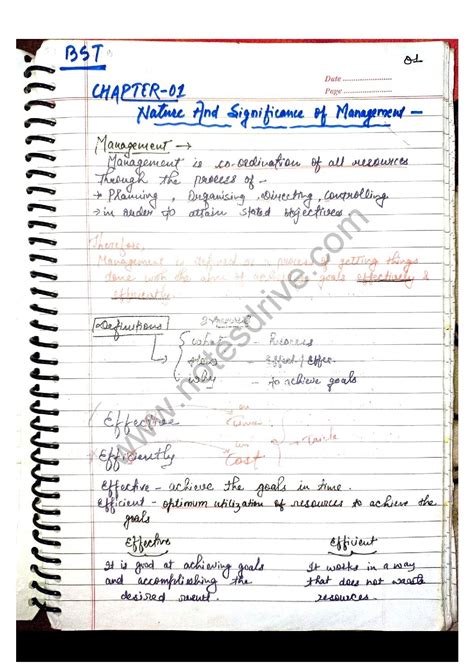 BST
01
Date ..................
Page ..................
CHAPTER-01
Nature And Significance of Management -
Management →
Management is co-ordination of all resources
Through the process of -
→ Planning, Organising, Directing, Controlling
→ in order to attain stated objectives
Therefore,
Management is defined as a process of getting things
done with the aim of goals effectively &
efficiently.
Definitions
what - Process
- Effect/Effic.
why - to achieve goals
Effective
Time
Efficiently
Cost
Effective - achieve the goals in time.
Efficient - optimum utilization of resources to achieve the
goals
Effective Efficient
It is good at achieving goals It works in a way
and accomplishing the that does not waste
desired result. resources.
www.notesdrive.com